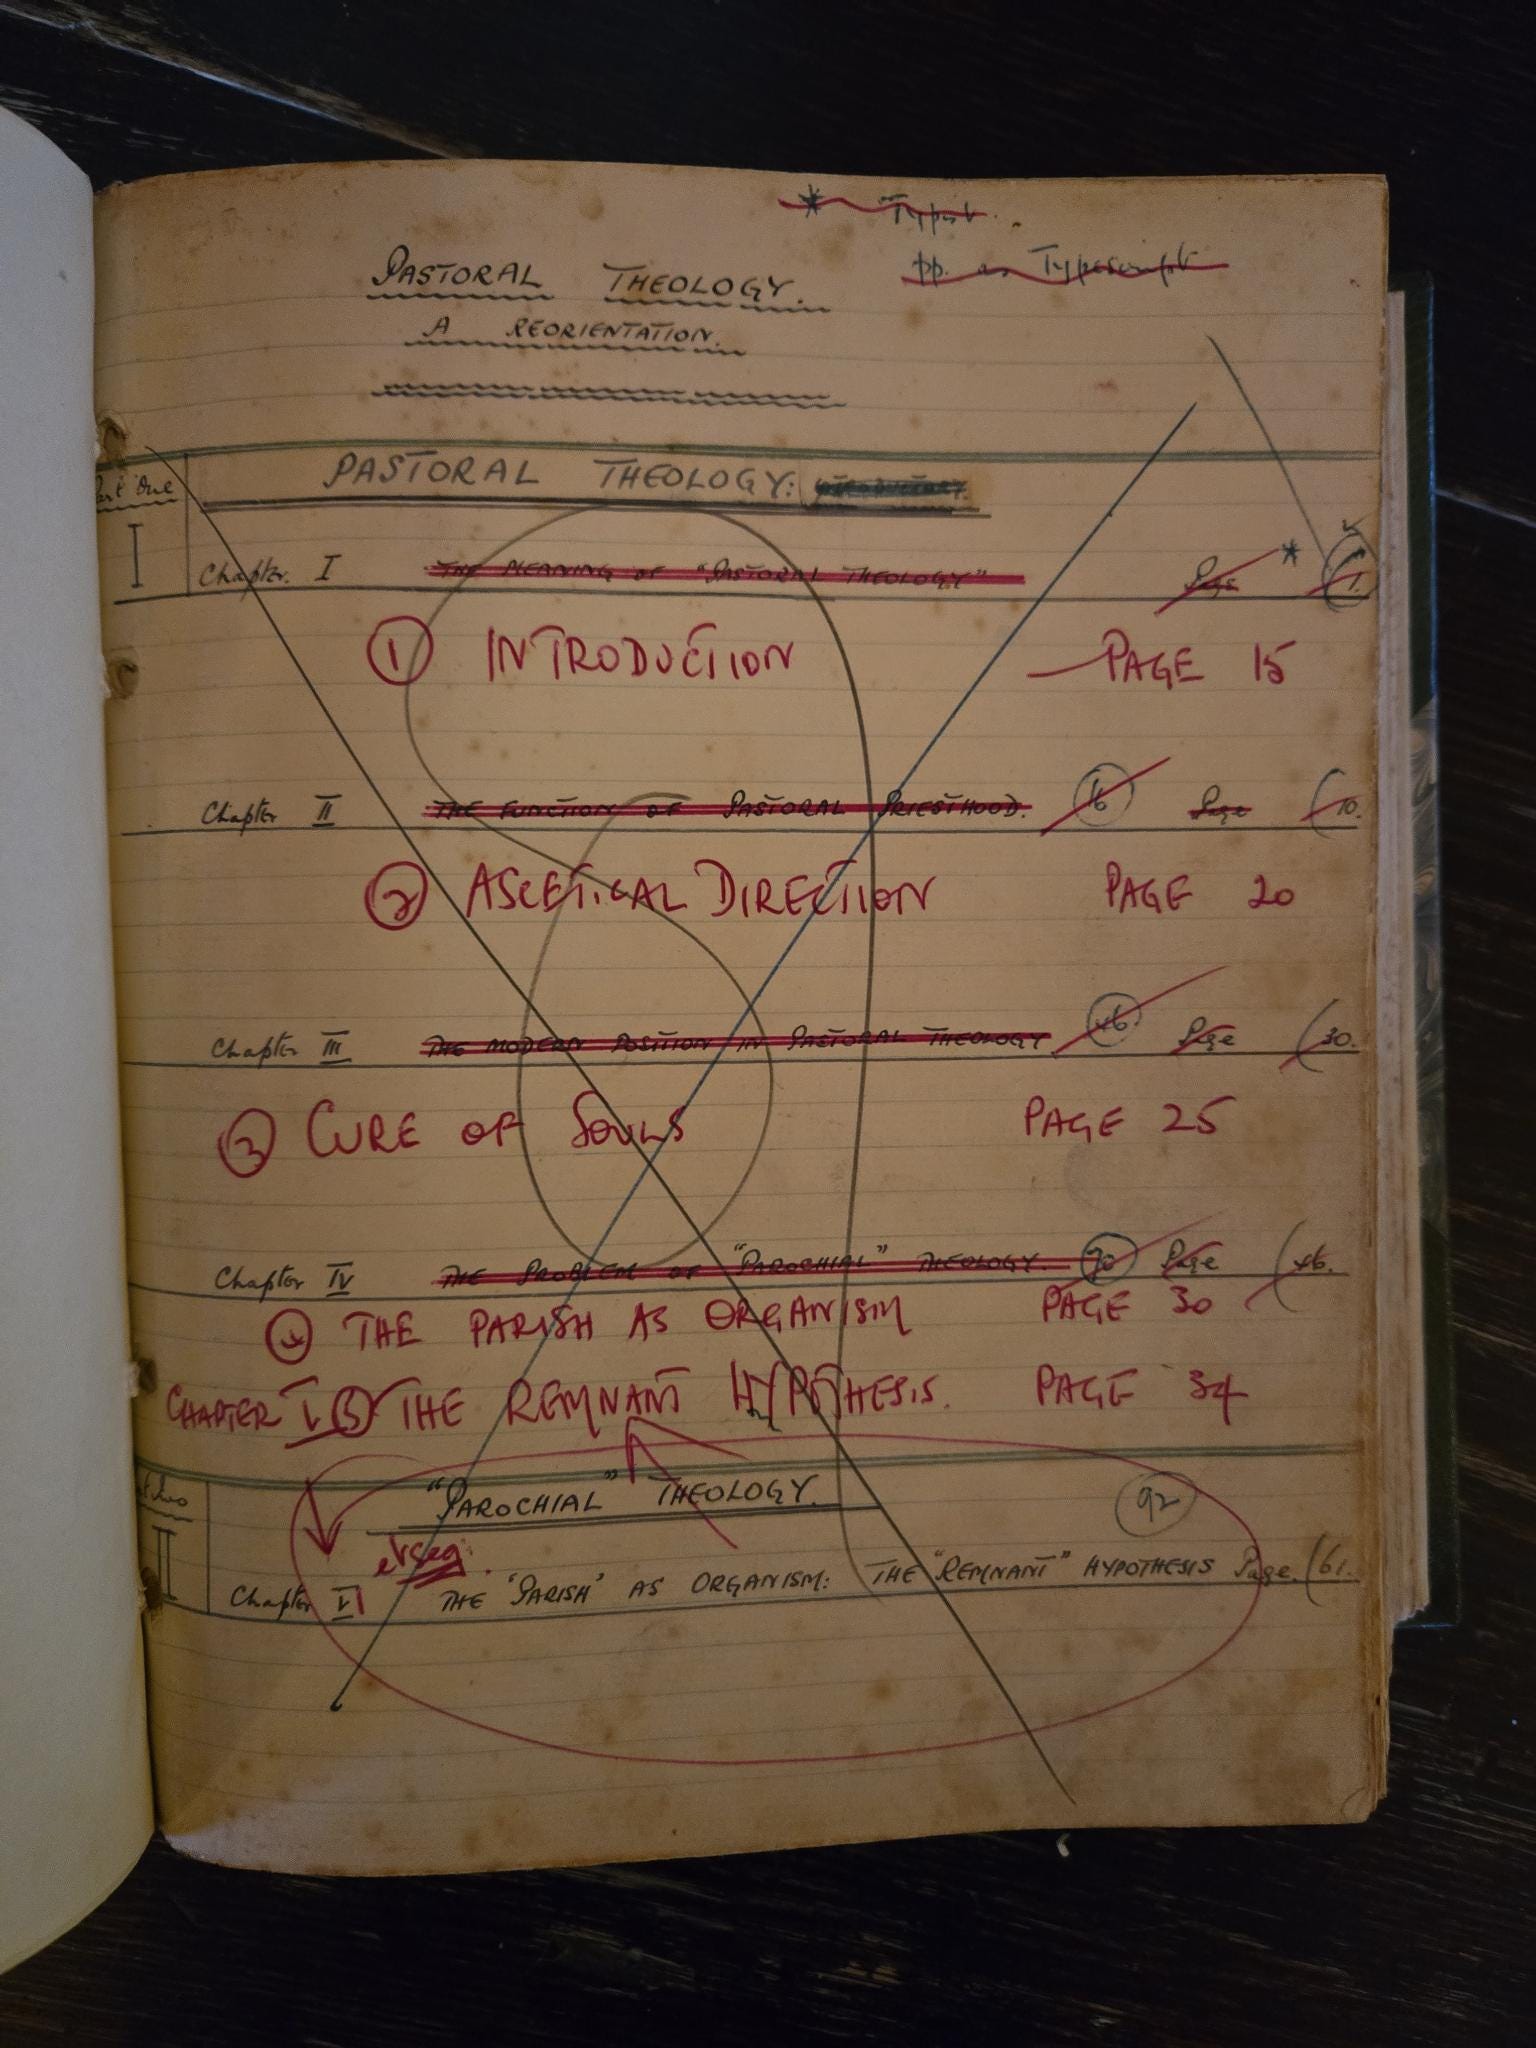 * Typist.
pp. as Typescript
PASTORAL THEOLOGY.
A REORIENTATION.
Part One
I
PASTORAL THEOLOGY: INTRODUCTORY.
Chapter. I THE MEANING OF "PASTORAL THEOLOGY" Page * 1.
① INTRODUCTION PAGE 15
Chapter II THE FUNCTION OF PASTORAL PRIESTHOOD. 16 Page (10.
② ASCETICAL DIRECTION PAGE 20
Chapter III THE MODERN POSITION IN PASTORAL THEOLOGY 46. Page (30.
③ CURE OF SOULS PAGE 25
Chapter IV THE PROBLEM OF "PAROCHIAL" THEOLOGY. 70 Page (46.
④ THE PARISH AS ORGANISM PAGE 30
CHAPTER V ⑤ THE REMNANT HYPOTHESIS. PAGE 34
II
"PAROCHIAL" THEOLOGY. 92
et seq.
Chapter VI THE "PARISH" AS ORGANISM: THE "REMNANT" HYPOTHESIS Page. (61.